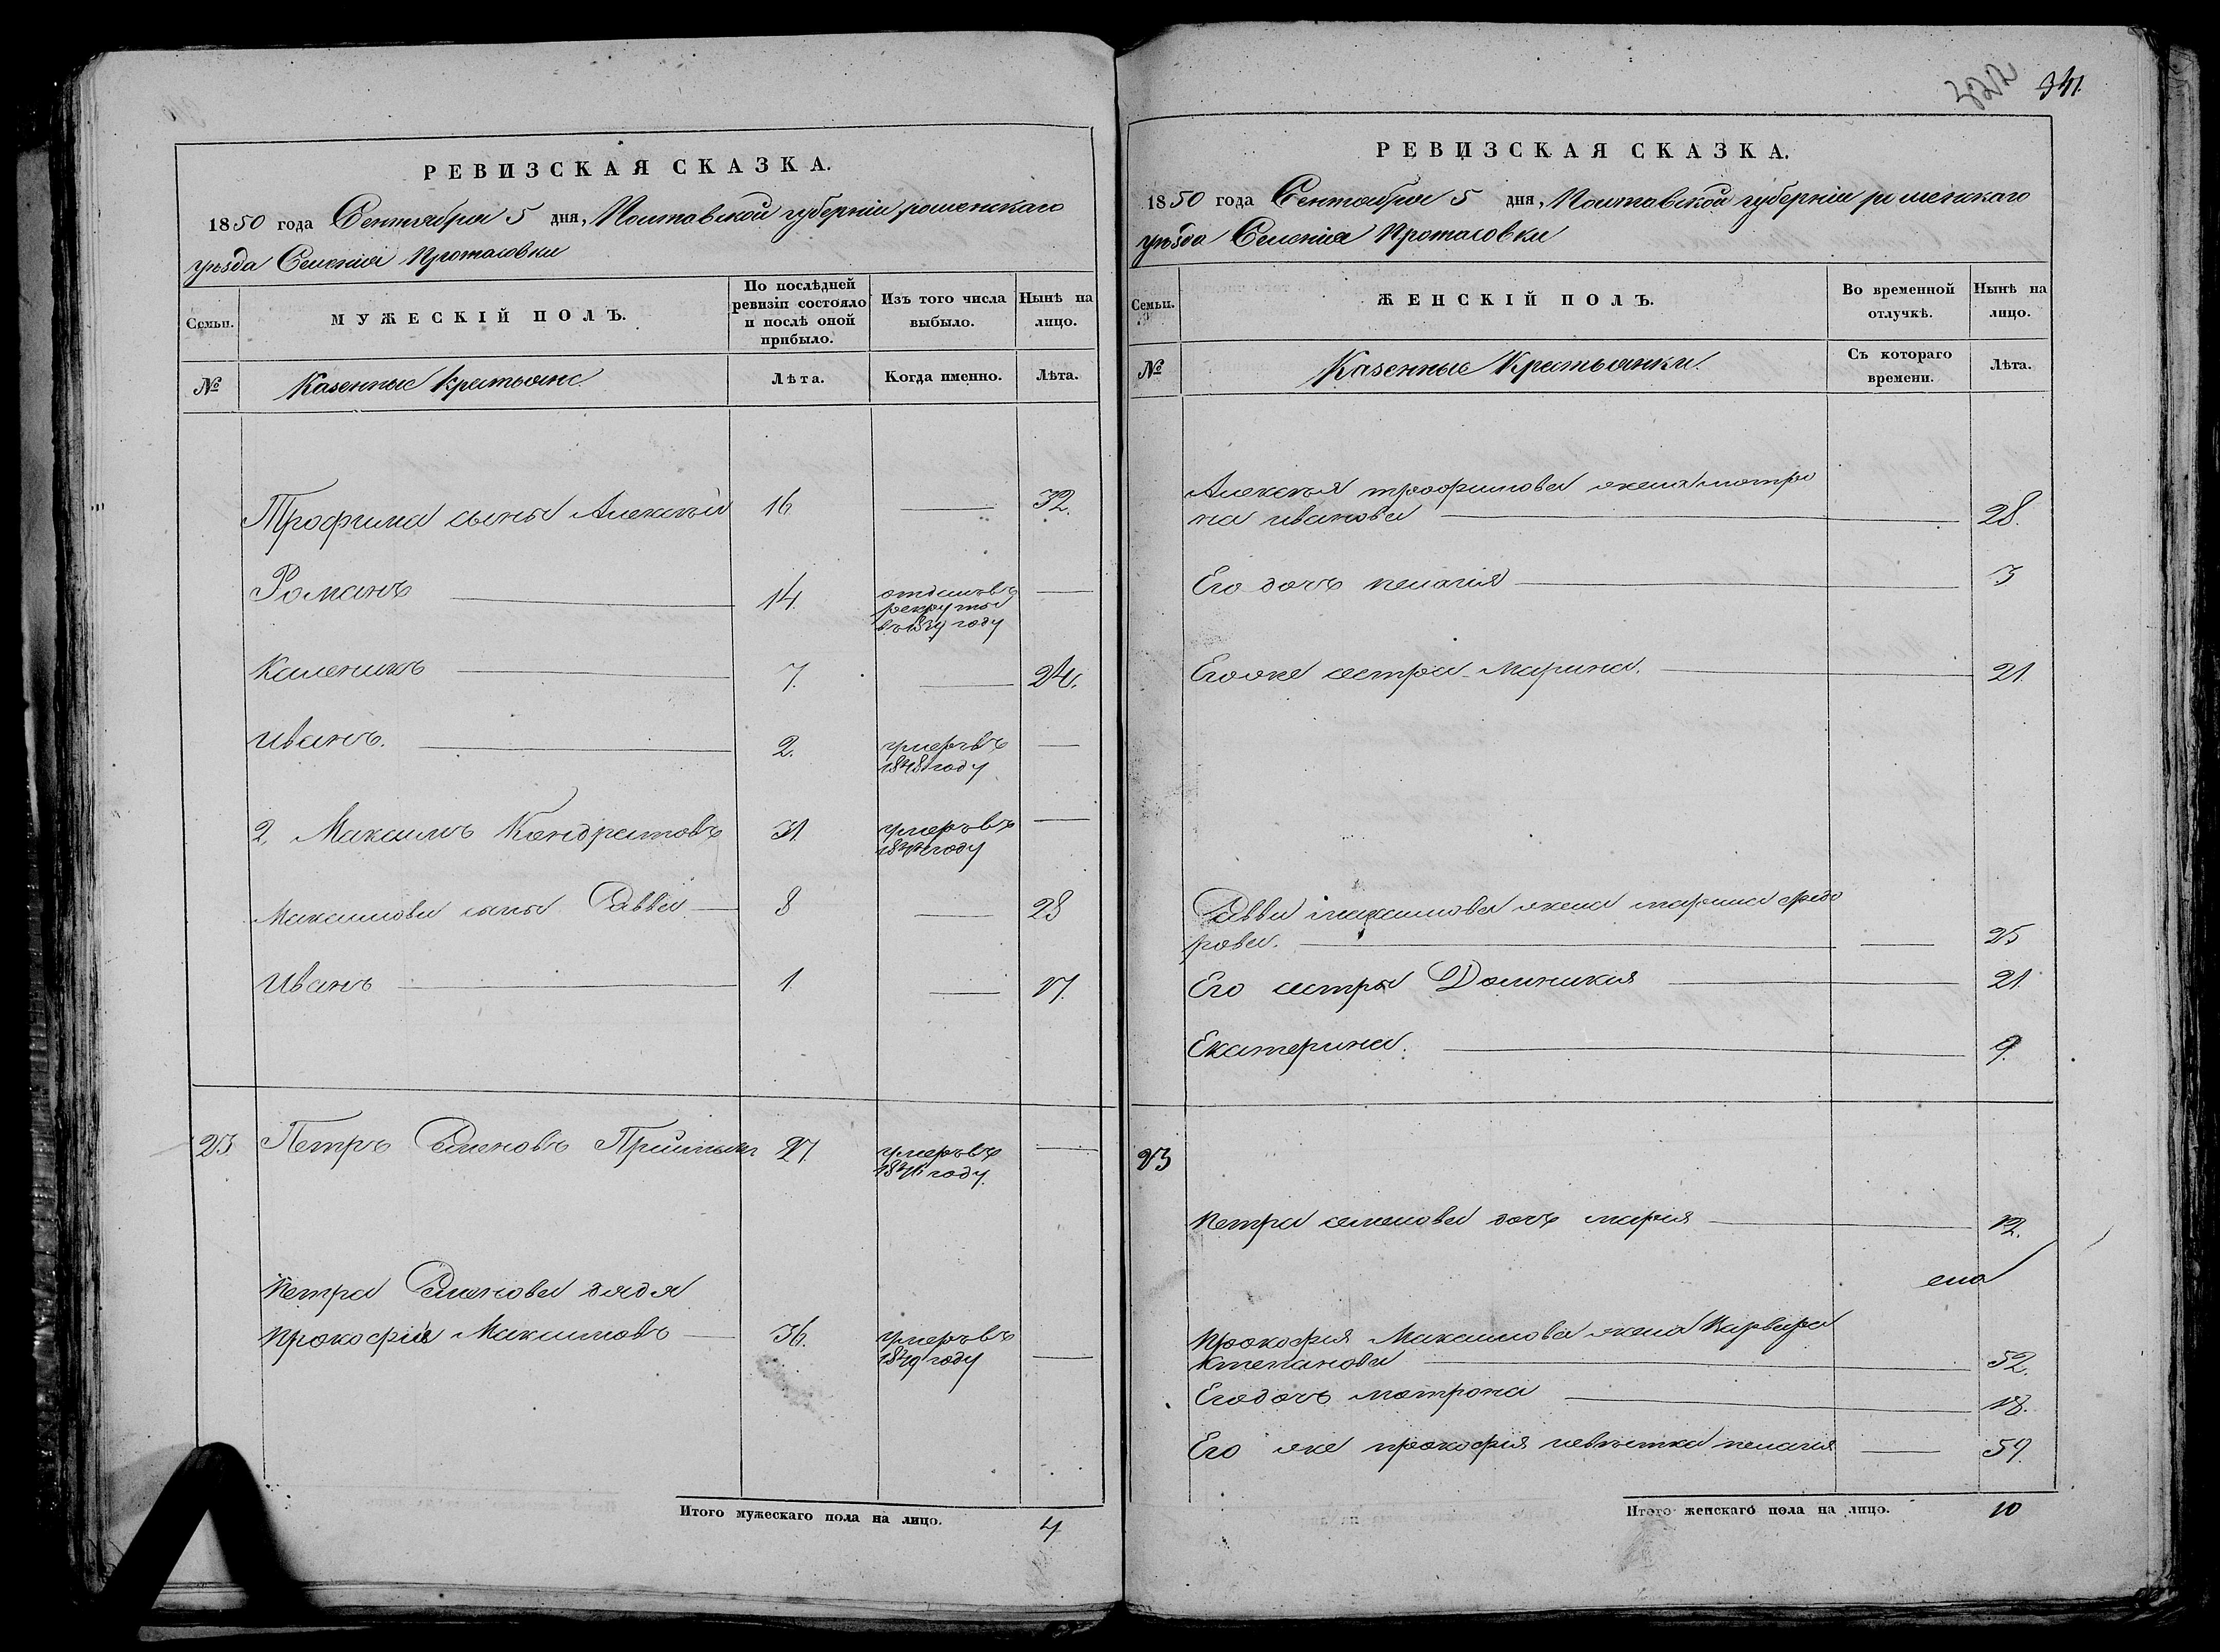 РЕВИЗСКАЯ СКАЗКА.
1850 года Сентября 5 дня, Полтавской губерніи роменскаго
уѣзда Селенія Протасовки
Семьи.
МУЖЕСКІЙ ПОЛЪ.
По послѣдней ревизіи состояло и послѣ оной прибыло.
Изъ того числа выбыло.
Нынѣ на лицо.
№
Казенные крестьяне
Лѣта.
Когда именно.
Лѣта.
Трофима сыны Алексѣй 16 32.
Романъ 14. отданъ въ
рекруты
въ 1839 году
Каленикъ 7. 24.
Иванъ. 2. умеръ въ
1848 году
2, Максимъ Кондратовъ 31. умеръ въ
году
Максимова сыны Савва 8 23
Иванъ 1 17.
23 Петръ Семеновъ 27. умеръ въ
1846 году.
Петра Семенова дядя
Прокофій Максимовъ 36. умеръ въ
1849 году
Итого мужескаго пола на лицо. 4
322 341.
РЕВИЗСКАЯ СКАЗКА.
1850 года Сентября 5 дня, Полтавской губерніи роменскаго
уѣзда Селенія Протасовки
Семьи.
ЖЕНСКІЙ ПОЛЪ.
Во временной отлучкѣ.
Нынѣ на лицо.
№
Казенные Крестьянки.
Съ котораго времени.
Лѣта.
Алексѣя трофимова жена мотро
на иванова 28.
Его дочь пелагія 3
Егоже сестра Марина. 21.
Савва максимова жена марина федо
рова. 25
Его сестры Домникия 21
Екатерина. 9.
23
Петра семенова дочь марія 12.
Прокофія Максимова жена Варвара
степанова 52.
Его дочь мотрона 18.
Его же прокофія невѣстка пелагія 59.
Итого женскаго пола на лицо. 10